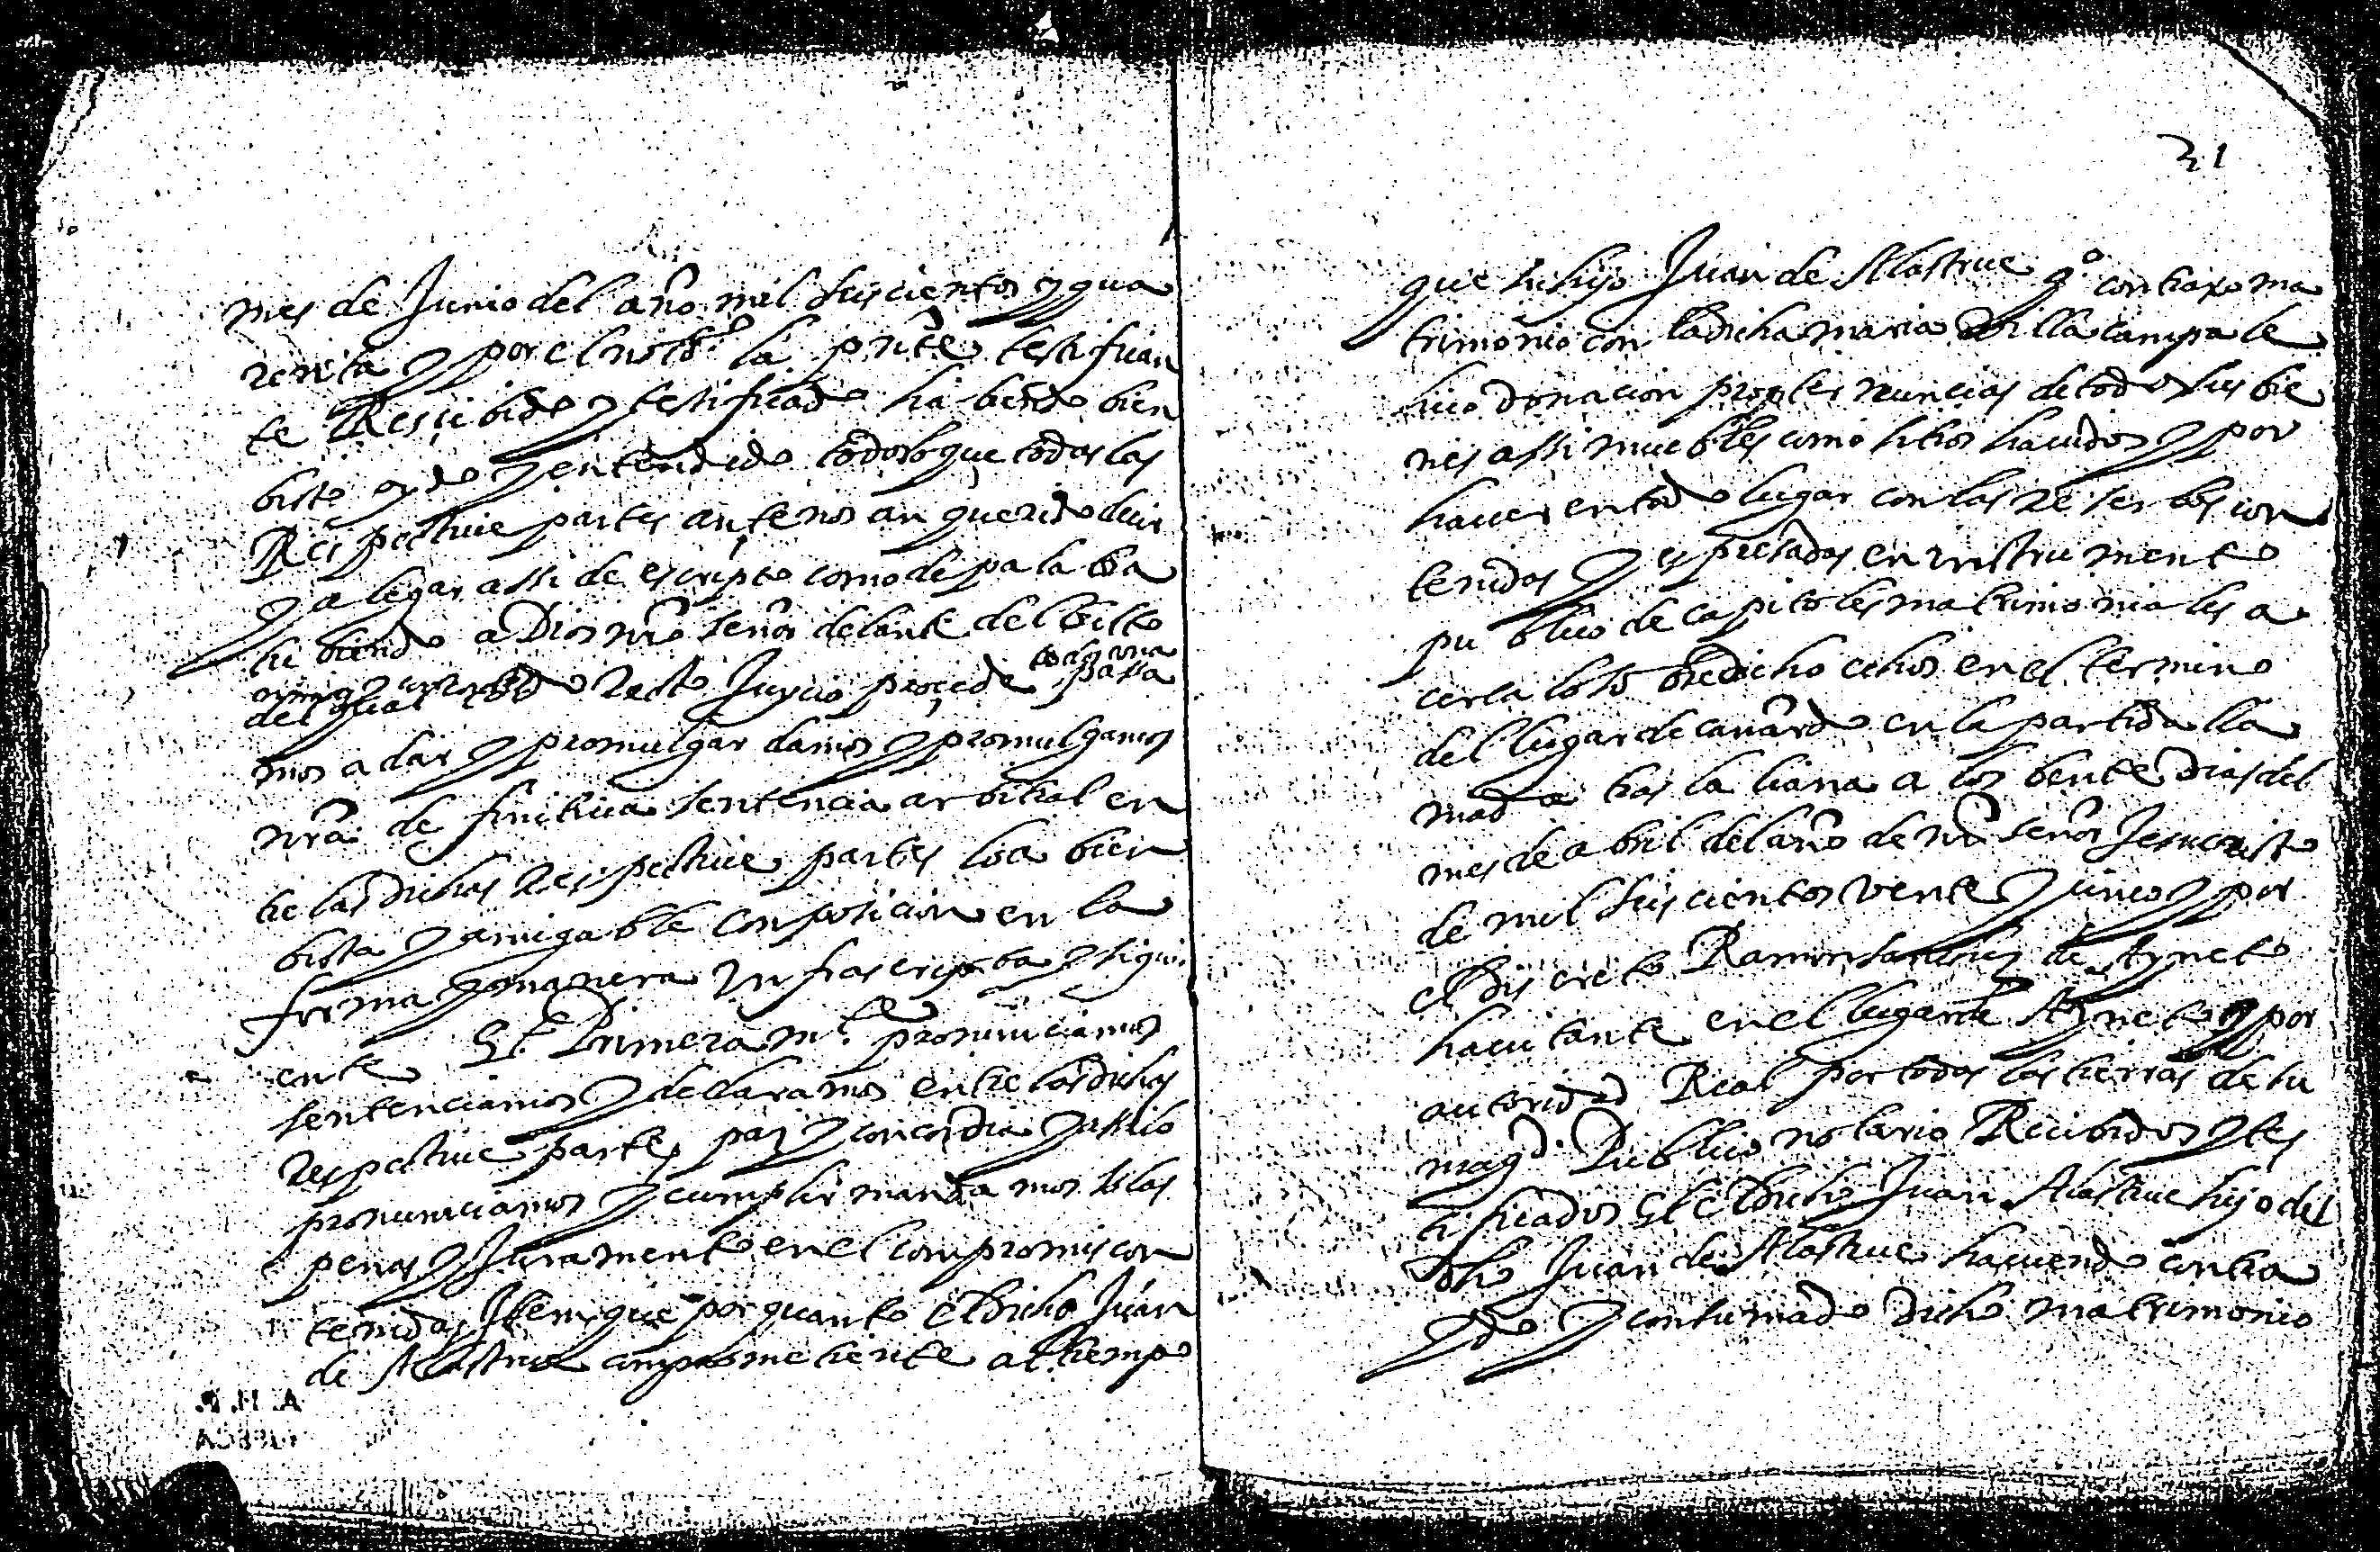 mes de Junio del año mil seiscientos y qua
renta y por el not.º la pnte testifican
te Resçibido y testificado ha biendo bien
bisto oydo y entendido todo lo que todas las
Respectiue partes ante nos an querido deçir
y alegar assi de escripto como de palabra
hubiendo a Dios nro señor delante del bisto
del qual todo recto Juycio proçede todos una
passa
mos a dar y promulgar damos y promulgamos
nra difinitiua sentencia arbitral en
tre las dichas respectiue partes loa bien
bista y amigable composicion en la
forma y manera infrascripta y sigui
ente Et Primeram.te pronunciamos
sentenciamos y declaramos entre las dichas
respectiue partes paz y concordia y assi lo
pronunciamos y cumplir mandamos so las
penas y Juramento en el compromis con
tenidas Item que por quanto el dicho Juan
de Alastrue comprometiente al tiempo
31
que su hijo Juan de Alastrue q.º contraxo ma
trimonio con la dicha maria Villacampa le
hiço donacion propter nuncias de todos sus bie
nes assi muebles como sitios hauidos y por
hauer en todo lugar con las reserbas con
tenidas y espresadas en instrumento
publico de capitoles matrimoniales a
cerca lo so bredicho echos en el termino
del lugar de cañardo en la partida lla
mada tras la liana a los bente dias del
mes de abril del año de nro señor Jesucristo
de mil seiscientos vente y cinco y por
el discreto Ramon sanchez de Ayneto
hauitante en el lugar de Ayneto y por
autoridad Real por todas las tierras de su
mag.d Publico notario Reciuidos y tes
tificados Et el dicho Juan Alastrue hijo del
dho Juan de Alastrue hauiendo contra
ydo y consumado dicho matrimonio
A.H.A